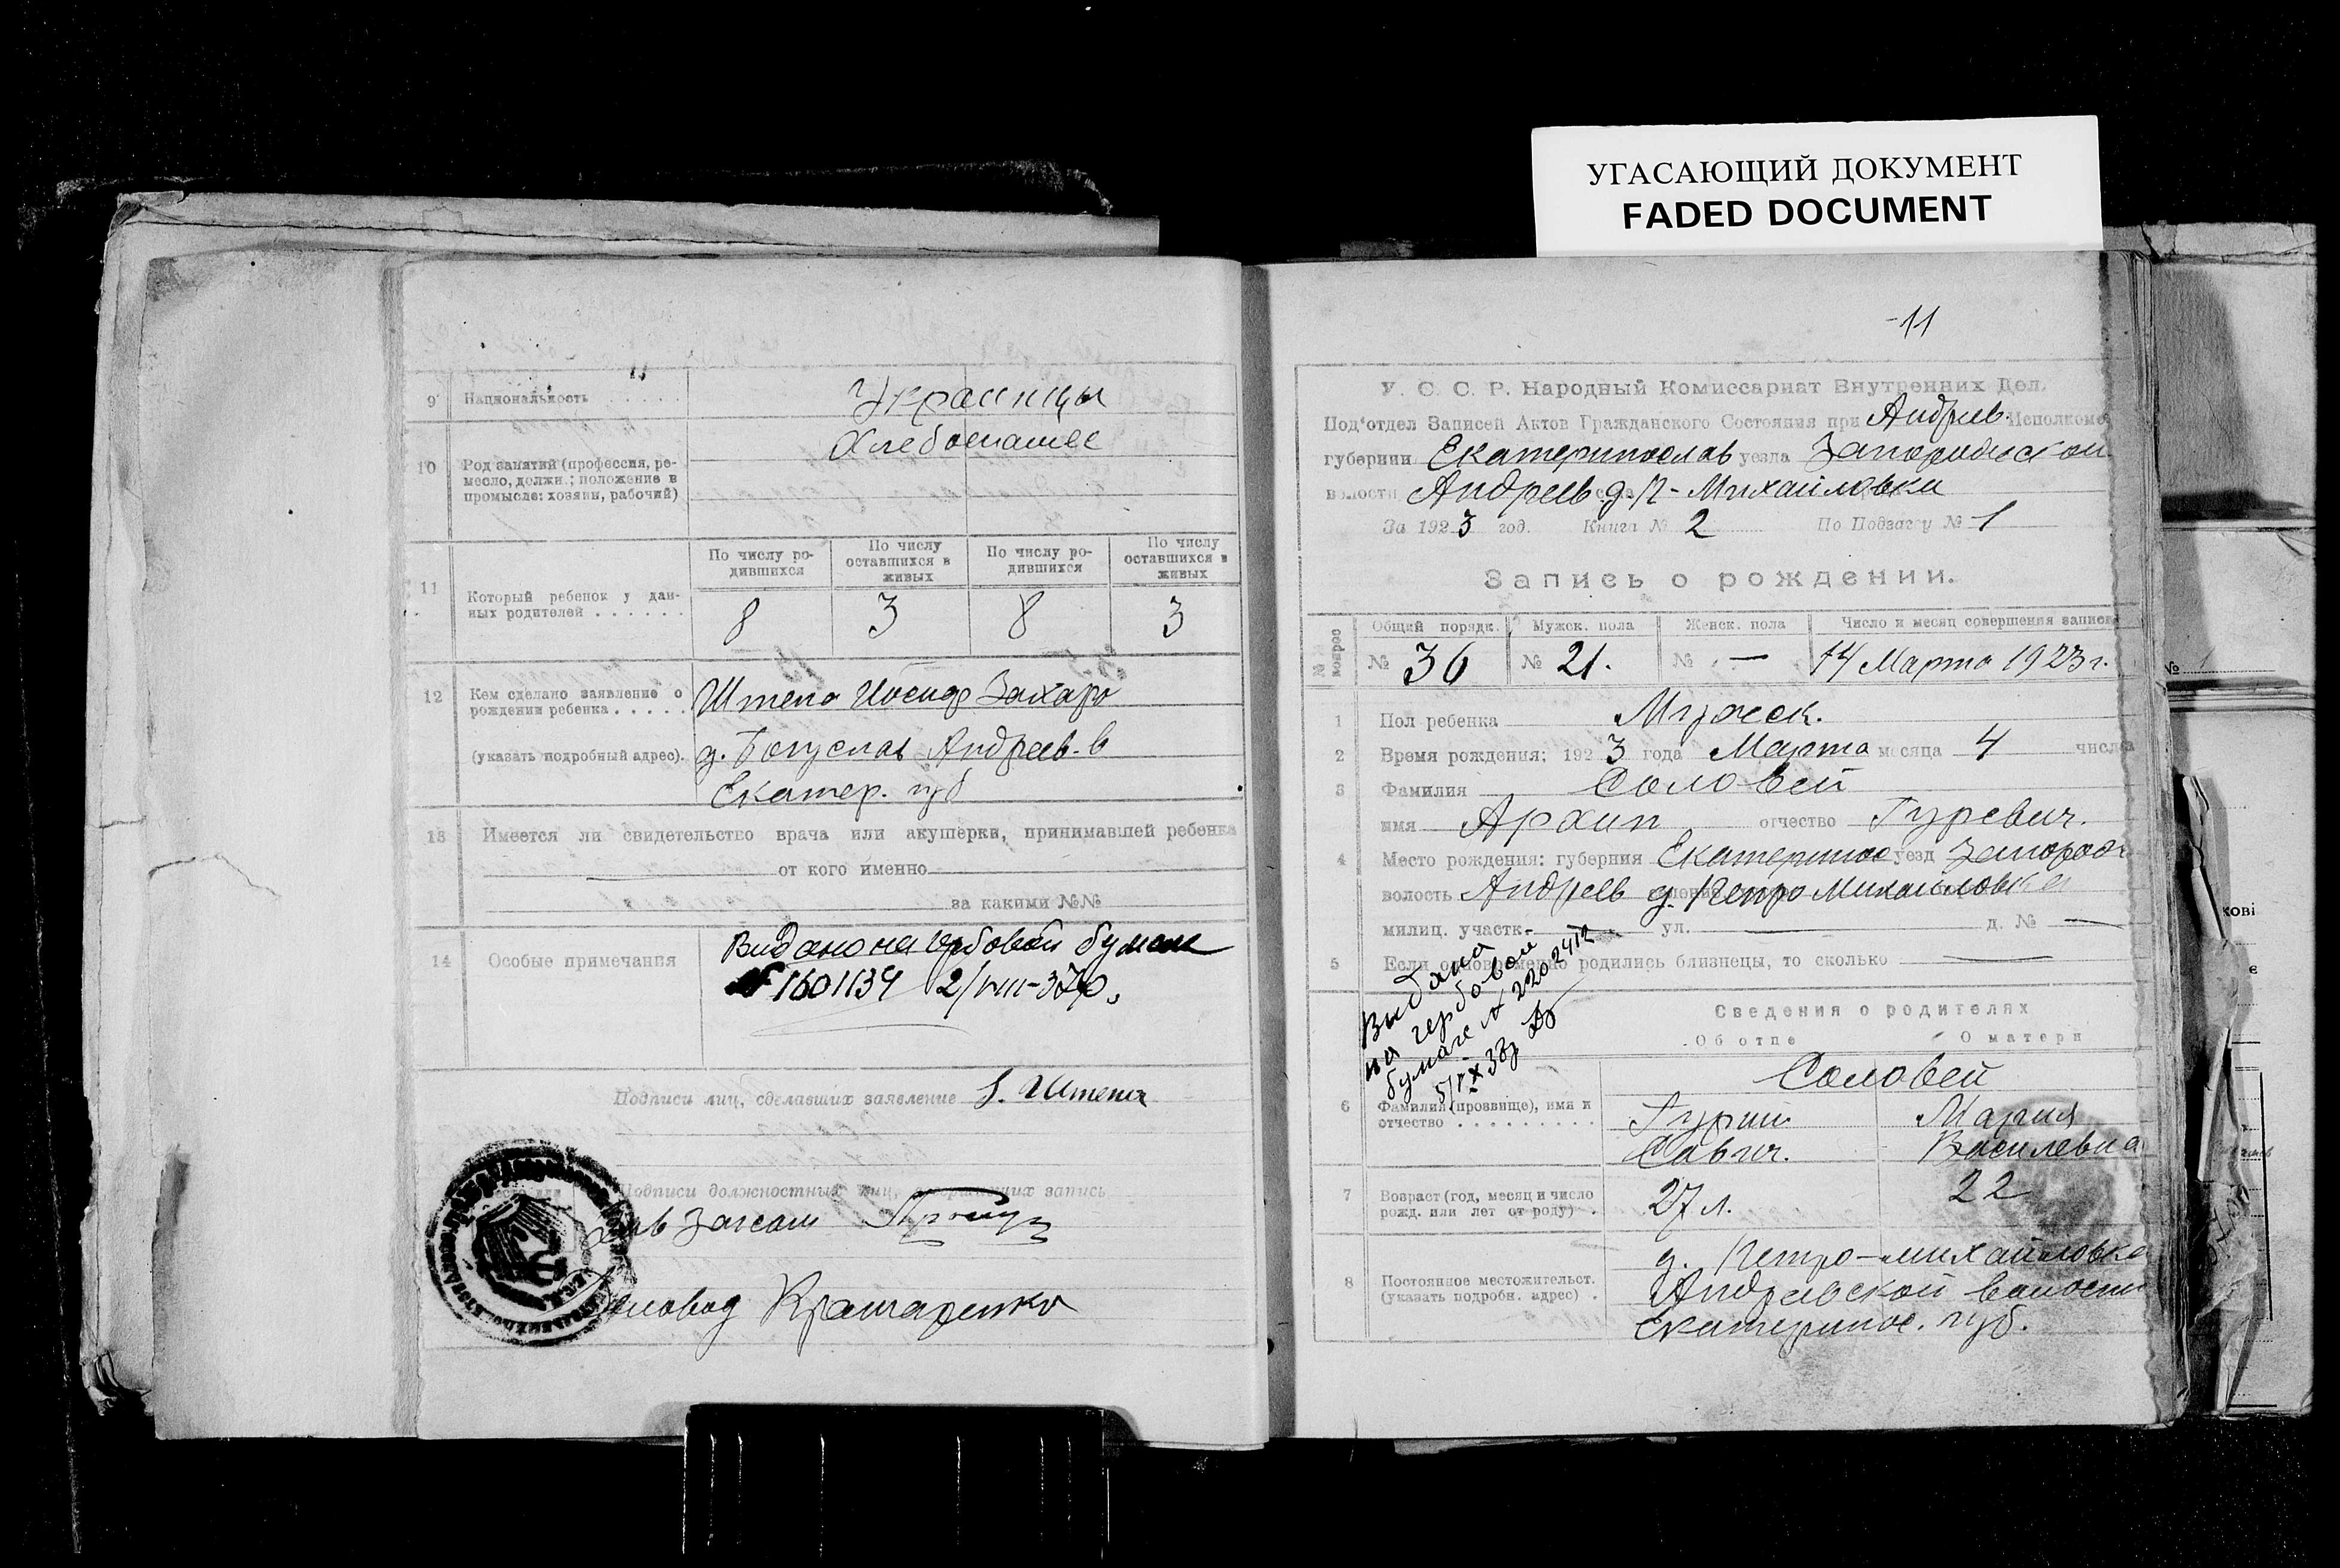 УГАСАЮЩИЙ ДОКУМЕНТ
FADED DOCUMENT
9 Национальность . . . . . Украинцы
10 Род занятий (профессия, ре-
месло, должн.; положение в
промысле: хозяин, рабочий)
Хлебопашес
11 Который ребенок у дан-
ных родителей . . . . . . .
По числу ро-
дившихся
По числу
оставшихся в
живых
По числу ро-
дившихся
По числу
оставшихся в
живых
8 3 8 3
12 Кем сделано заявление о
рождении ребенка . . . . .
(указать подробный адрес).
Штепа Иосиф Захаро
д. Богуслав Андреев. в
Екатер. губ
13 Имеется ли свидетельство врача или акушерки, принимавшей ребенка
от кого именно
за какими №№
14 Особые примечания
Видано на гербовой бумаге
№ 1601134 2/VIII-37р.
Подписи лиц, сделавших заявление Штепа
Подписи должностных лиц, совершивших запись
Зав Загсом
Деловод
-11
У. С. С. Р. Народный Комиссариат Внутренних Дел.
Под'отдел Записей Актов Гражданского Состояния при Андрев. Исполкоме
губернии Екатеринослав уезда Запорожской
волости Андреев д. П-Михайловки
За 1923 год. Книга № 2 По Подзагсу № 1
Запись о рождении.
№№ вопрос
Общий порядк. Мужск. пола Женск. пола Число и месяц совершения записи
№ 36 № 21. № — 14 Марта 1923 г.
1 Пол ребенка Мужеск.
2 Время рождения: 1923 года Марта месяца 4 числа
3 Фамилия Соловей
имя Архип отчество Гуревич.
4 Место рождения: губерния Екатеринос уезд Запорож
волость Андреев д. Петро Михайловке
милиц. участк. — ул. — д. № —
5 Если одновременно родились близнецы, то сколько —
Выдана
на гербовой
бумаге № 2202412
5/IX 38г
Сведения о родителях
Об отце О матери
6 Фамилия (прозвище), имя и
отчество . . . . . . . . .
Соловей
Гурий Мария
Савич. Василевна
7 Возраст (год, месяц и число
рожд. или лет от роду) .
27 л. 22
8 Постоянное местожительст.
(указать подробн. адрес) .
д. Петро-михайловка
Андреевской волости
Екатеринос. губ.